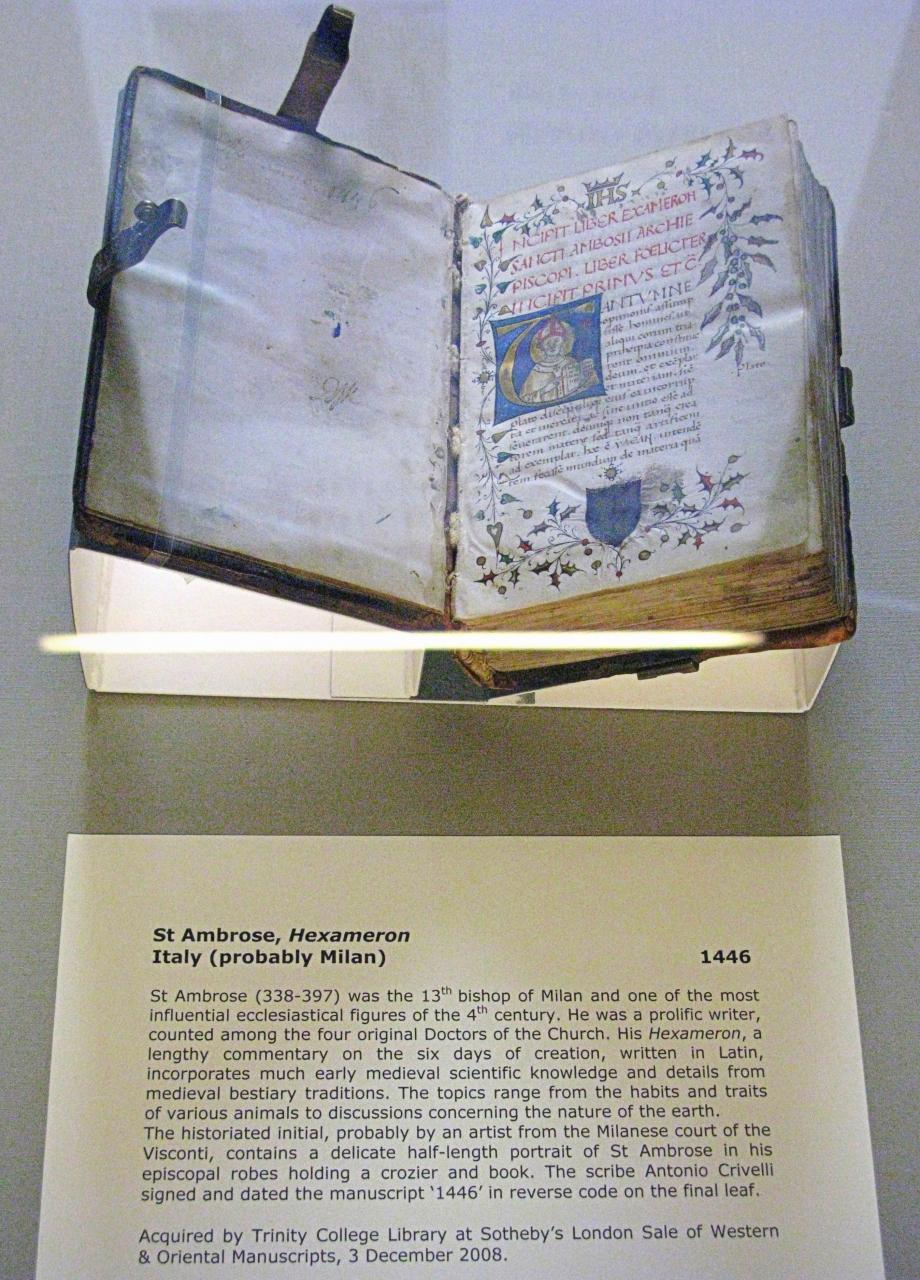 1446
IHS
INCIPIT LIBER EXAMERON
SANCTI AMBOSII ARCHIE
PISCOPI. LIBER FŒLICITER
INCIPIT PRIMVS ET C̄
TANTVMNE
opinionis assump
aliqui eorum tria
principia
omnium
deum. et
et
Plato
eius
ta et sine initio esse ad
non
sed artificem
ad exemplar. intende
fecisse mundum de materia
St Ambrose, Hexameron
Italy (probably Milan) 1446
St Ambrose (338-397) was the 13th bishop of Milan and one of the most
influential ecclesiastical figures of the 4th century. He was a prolific writer,
counted among the four original Doctors of the Church. His Hexameron, a
lengthy commentary on the six days of creation, written in Latin,
incorporates much early medieval scientific knowledge and details from
medieval bestiary traditions. The topics range from the habits and traits
of various animals to discussions concerning the nature of the earth.
The historiated initial, probably by an artist from the Milanese court of the
Visconti, contains a delicate half-length portrait of St Ambrose in his
episcopal robes holding a crozier and book. The scribe Antonio Crivelli
signed and dated the manuscript ‘1446’ in reverse code on the final leaf.
Acquired by Trinity College Library at Sotheby’s London Sale of Western
& Oriental Manuscripts, 3 December 2008.